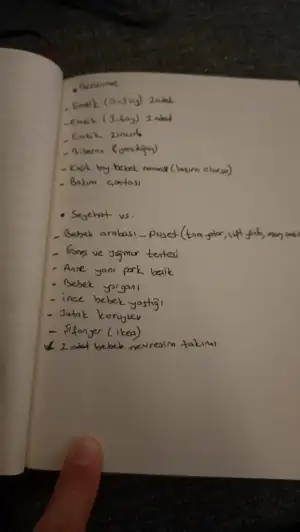 • Beslenme
- Emzik (0-3 ay) 2 adet
- Emzik (3-6 ay) 2 adet
- Emzik zinciri
- Biberon
- Küçük boy bebek
- Bakım çantası
• Seyahat vs.
- Bebek arabası - Puset (tam yatar, çift yönlü,
- Güneş ve yağmur tentesi
- Anne yanı park beşik
- Bebek yorganı
- ince bebek yastığı
- Yatak koruyucu
- Şifonyer (ikea)
2 adet bebek nevresim takımı